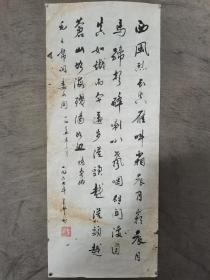 西風烈長空雁叫霜晨月霜晨月
馬蹄聲碎喇叭聲咽雄關漫道
真如鐵而今邁步從頭越從頭越
蒼山如海殘陽如血憶秦娥
毛主席詞婁山關